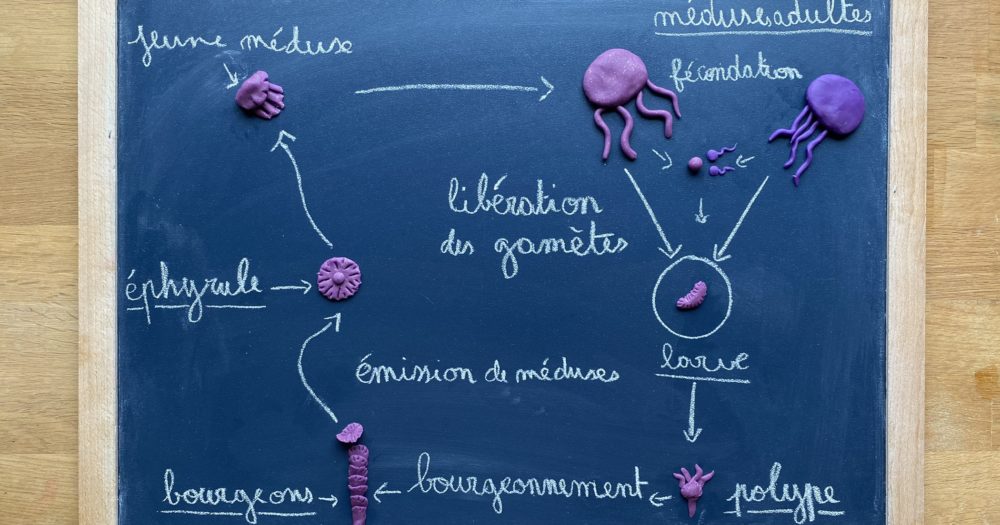 jeune méduse
méduses adultes
fécondation
libération
des gamètes
éphyrule
larve
émission de méduses
bourgeons
bourgeonnement
polype